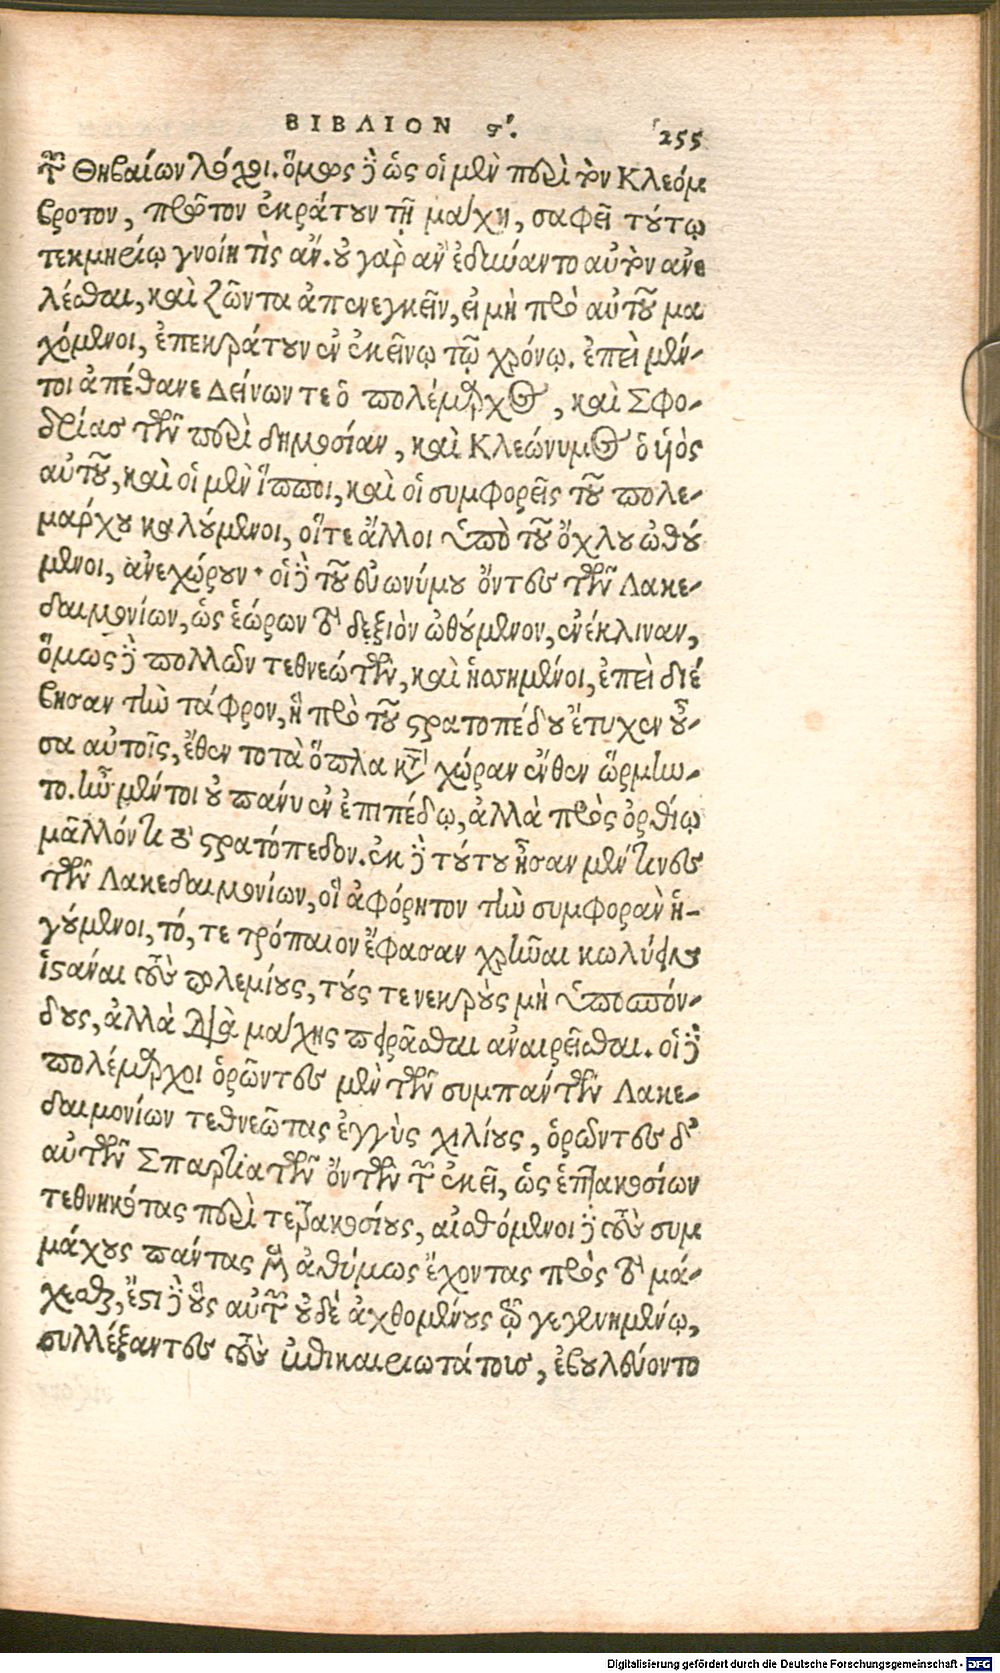 ΒΙΒΛΙΟΝ ϛʹ. 255
τῶν Θηβαίων λόχοι. ὅμως δὲ ὡς οἱ μὲν περὶ τὸν Κλεόμ
βροτον, πρῶτον ἐκράτουν τῇ μάχῃ, σαφεῖ τούτῳ
τεκμηρίῳ γνοίη τὶς ἄν. οὐ γὰρ ἂν ἐδύναντο αὐτὸν ἀνε
λέσθαι, καὶ ζῶντα ἀπενεγκεῖν, εἰ μὴ πρὸ αὐτοῦ μα
χόμενοι, ἐπεκράτουν ἐν ἐκείνῳ τῷ χρόνῳ. ἐπεὶ μέν-
τοι ἀπέθανε Δείνων τε ὁ πολέμαρχος, καὶ Σφο-
δρίας τῶν περὶ δημοσίαν, καὶ Κλεώνυμος ὁ ὑὸς
αὐτοῦ, καὶ οἱ μὲν ἵπποι, καὶ οἱ συμφορεῖς τοῦ πολε-
μάρχου καλούμενοι, οἵ τε ἄλλοι ὑπὸ τοῦ ὄχλου ὠθού
μενοι, ἀνεχώρουν· οἱ δὲ τοῦ εὐωνύμου ὄντες τῶν Λακε-
δαιμονίων, ὡς ἑώρων τὸ δεξιὸν ὠθούμενον, ἐνέκλιναν,
ὅμως δὲ πολλῶν τεθνεώτων, καὶ ἡσσημένοι, ἐπεὶ διέ
βησαν τὴν τάφρον, ἣ πρὸ τοῦ στρατοπέδου ἔτυχεν οὖ-
σα αὐτοῖς, ἔθεντο τὰ ὅπλα κατὰ χώραν ἔνθεν ὥρμην-
το. ἦν μέντοι οὐ πάνυ ἐν ἐπιπέδῳ, ἀλλὰ πρὸς ὀρθίῳ
μᾶλλόν τι τὸ στρατόπεδον. ἐκ δὲ τούτου ἦσαν μέν τινες
τῶν Λακεδαιμονίων, οἳ ἀφόρητον τὴν συμφορὰν ἡ-
γούμενοι, τό, τε τρόπαιον ἔφασαν χρῆναι κωλύειν
ἱστάναι τοὺς πολεμίους, τούς τε νεκροὺς μὴ ὑποσπόν-
δους, ἀλλὰ διὰ μάχης πειρᾶσθαι ἀναιρεῖσθαι. οἱ δὲ
πολέμαρχοι ὁρῶντες μὲν τῶν συμπάντων Λακε-
δαιμονίων τεθνεῶτας ἐγγὺς χιλίους, ὁρῶντες δ'
αὐτῶν Σπαρτιατῶν ὄντων τῶν ἐκεῖ, ὡς ἑπτακοσίων
τεθνηκότας περὶ τετρακοσίους, αἰσθόμενοι δὲ τοὺς συμ
μάχους πάντας μὲν ἀθύμως ἔχοντας πρὸς τὸ μά-
χεσθαι, ἔστι δὲ οὓς αὐτῶν οὐδὲ ἀχθομένους τῷ γεγενημένῳ,
συλλέξαντες τοὺς ἐπικαιριωτάτοις, ἐβουλεύοντο
Digitalisierung gefördert durch die Deutsche Forschungsgemeinschaft - DFG